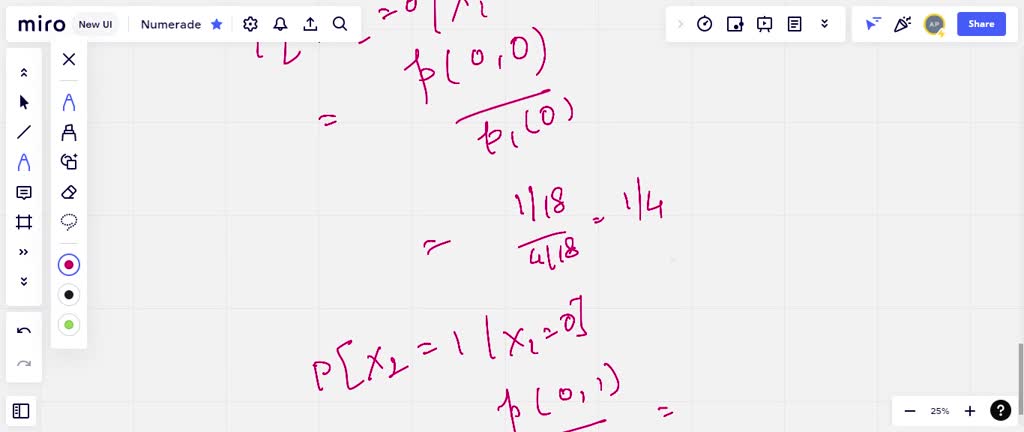 miro New UI Numerade Share
= 0 | X1
p(0,0)
=
p1(0)
1/18
= = 1/4
4/18
P[X2 = 1 | X1 = 0]
p(0,1)
=
25%